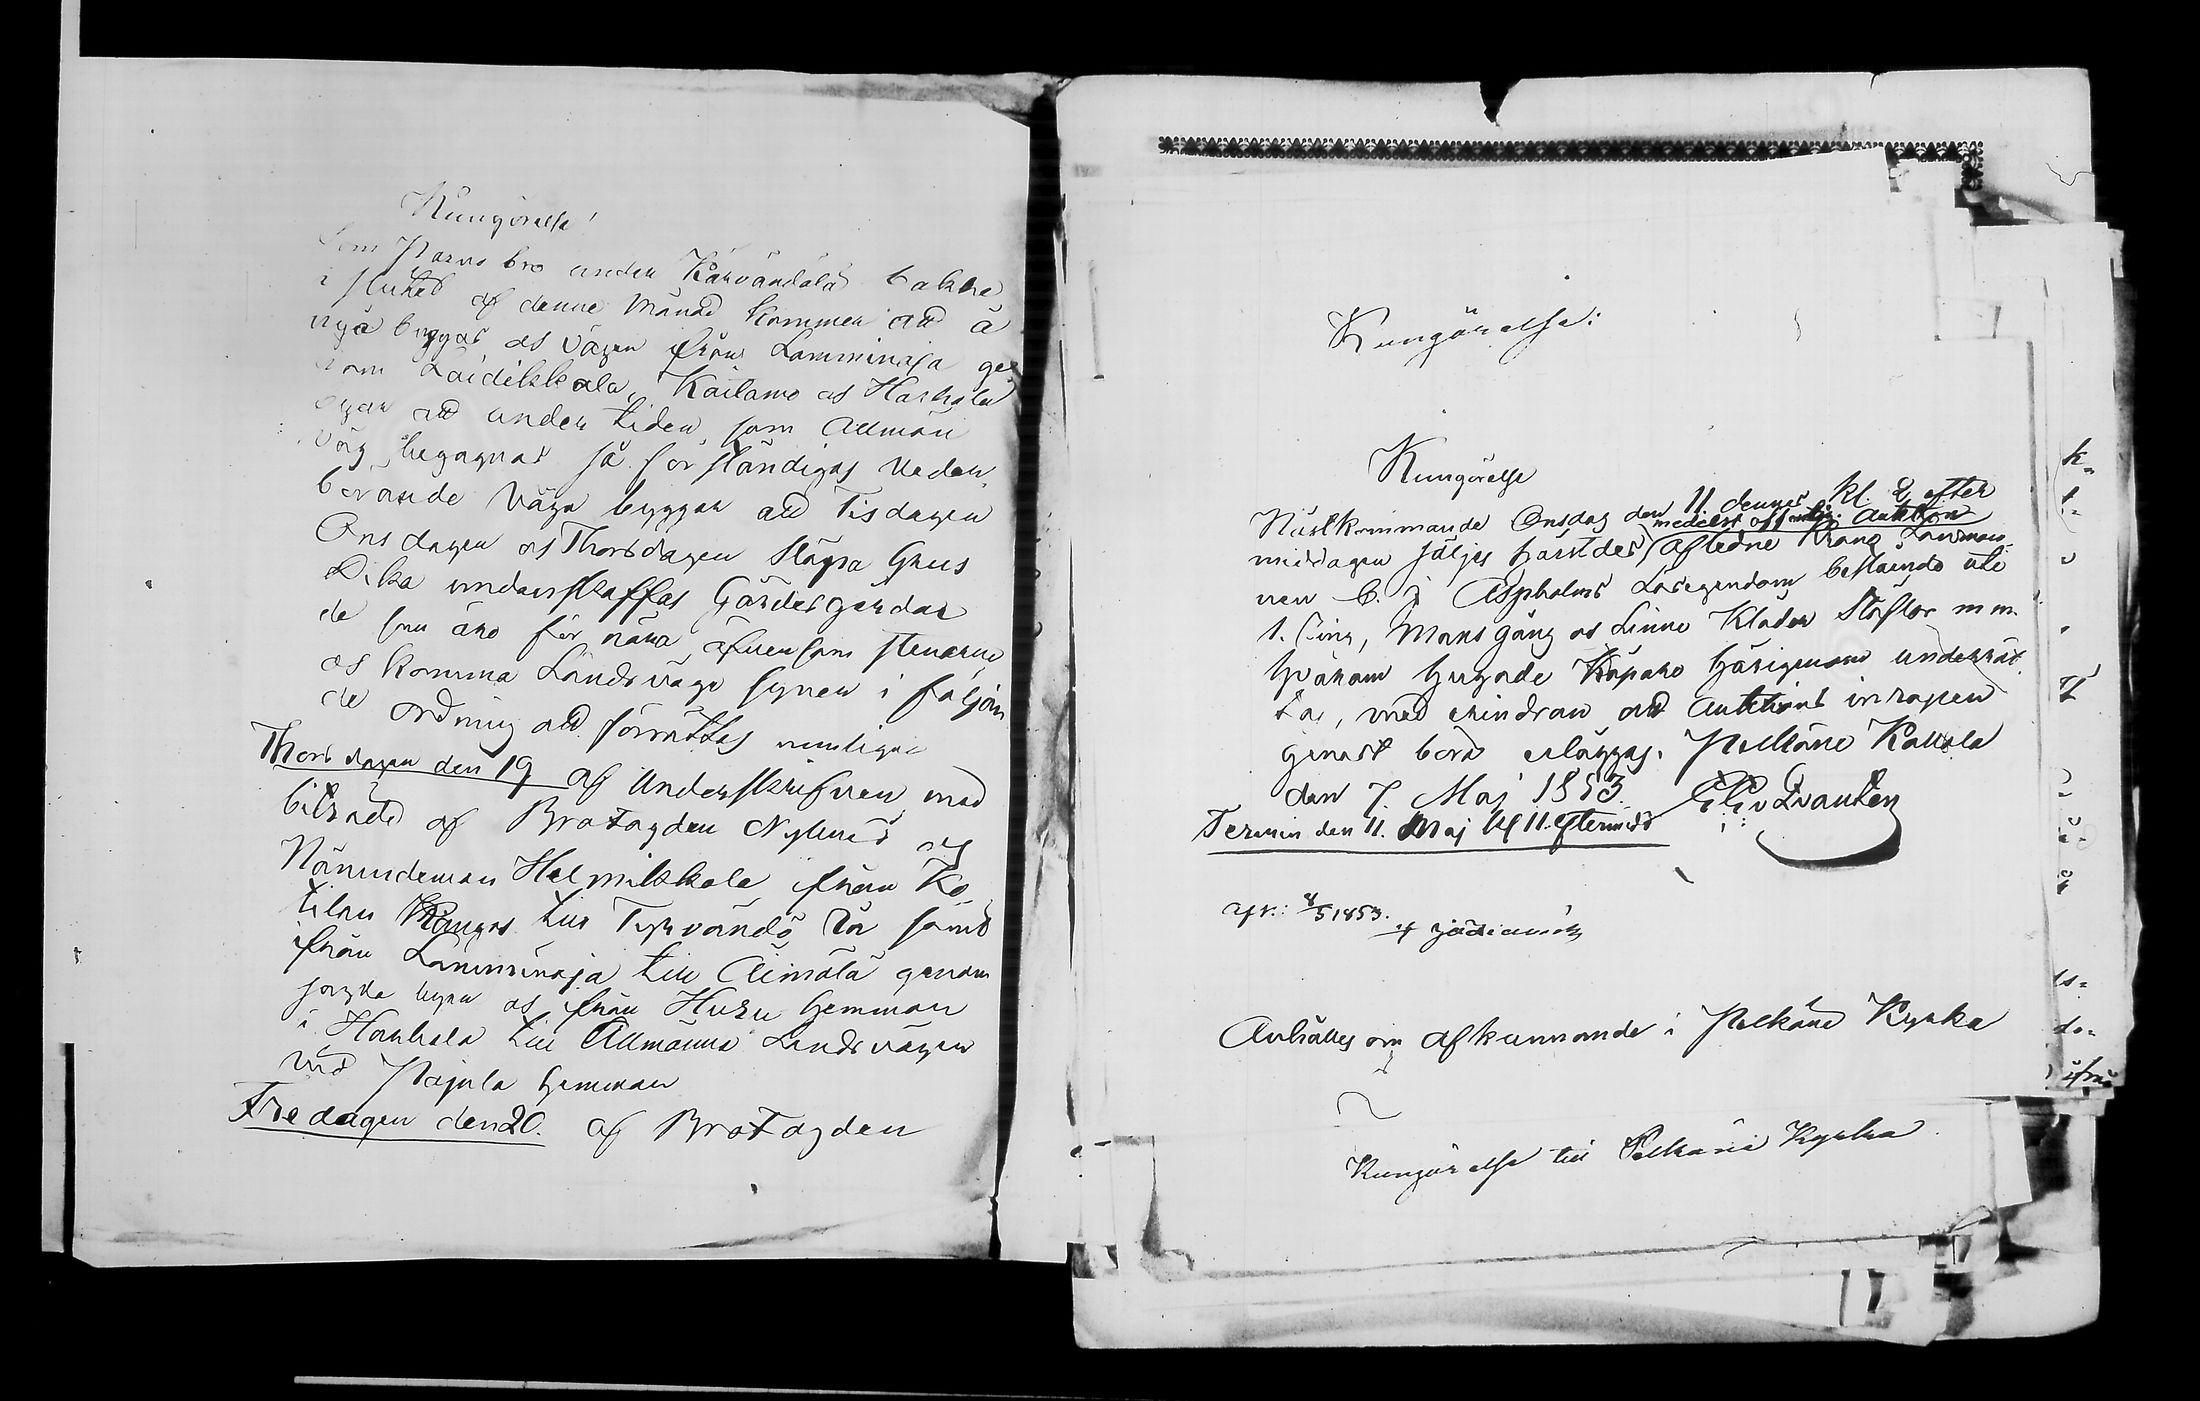 Kungörelse!
Som Parns bro under Kärväntälä bakke
i slutet af denne Månad kommer att å
nyo byggas os Vägen ifrån Lamminraja ge-
nom Laidikkala, Kailamo os Harhala
byar att under tiden som Allmän
Väg begagnas så förständigas Veder-
börande Väga byggar att Tisdagen
Onsdagen os Thorsdagen släpa Grus
Dika undanskaffas Gärdesgårdar
de som äro för nära, äfvensom stenarne
os komma Landsvägs synen i följan
de ordning att förrättas nemligen
Thorsdagen den 19 af Underskrifven med
biträde af Brofogden Nylund os
Nämndeman Heimikkala ifrån Ko
tilan Kangas till Tyrväntö Rå samt
ifrån Lamminraja till Äimälä genom
sagda byar os ifrån Huru hemman
i Harhala till Allmänna Landsvägen
vid Pajula hemman
Fredagen den 20. af Brofogden
Kungörelse:
Kungörelse
Nästkommande Onsdag den 11 dennes kl. 2 efter
medelst offentlig Auktion
middagen säljes härstädes afledne Krono Länsman-
nen C. J. Aspholms Lösegendom bestående uti
Mans Gång os Linne Kläder Stöflor m m.
hvarom hugade Köpare härigenom underrät
tas, med erindran att Auktions inropen
genast böra erläggas. Pelkäne Kallola
den 7. Maj 1853.
Termin den 11. Maj kl 11. eftermidd
8/5 1853.
Anhålles om afkunnande i Pelkäne Kyrka
Kungörelse till Pelkäne Kyrka.